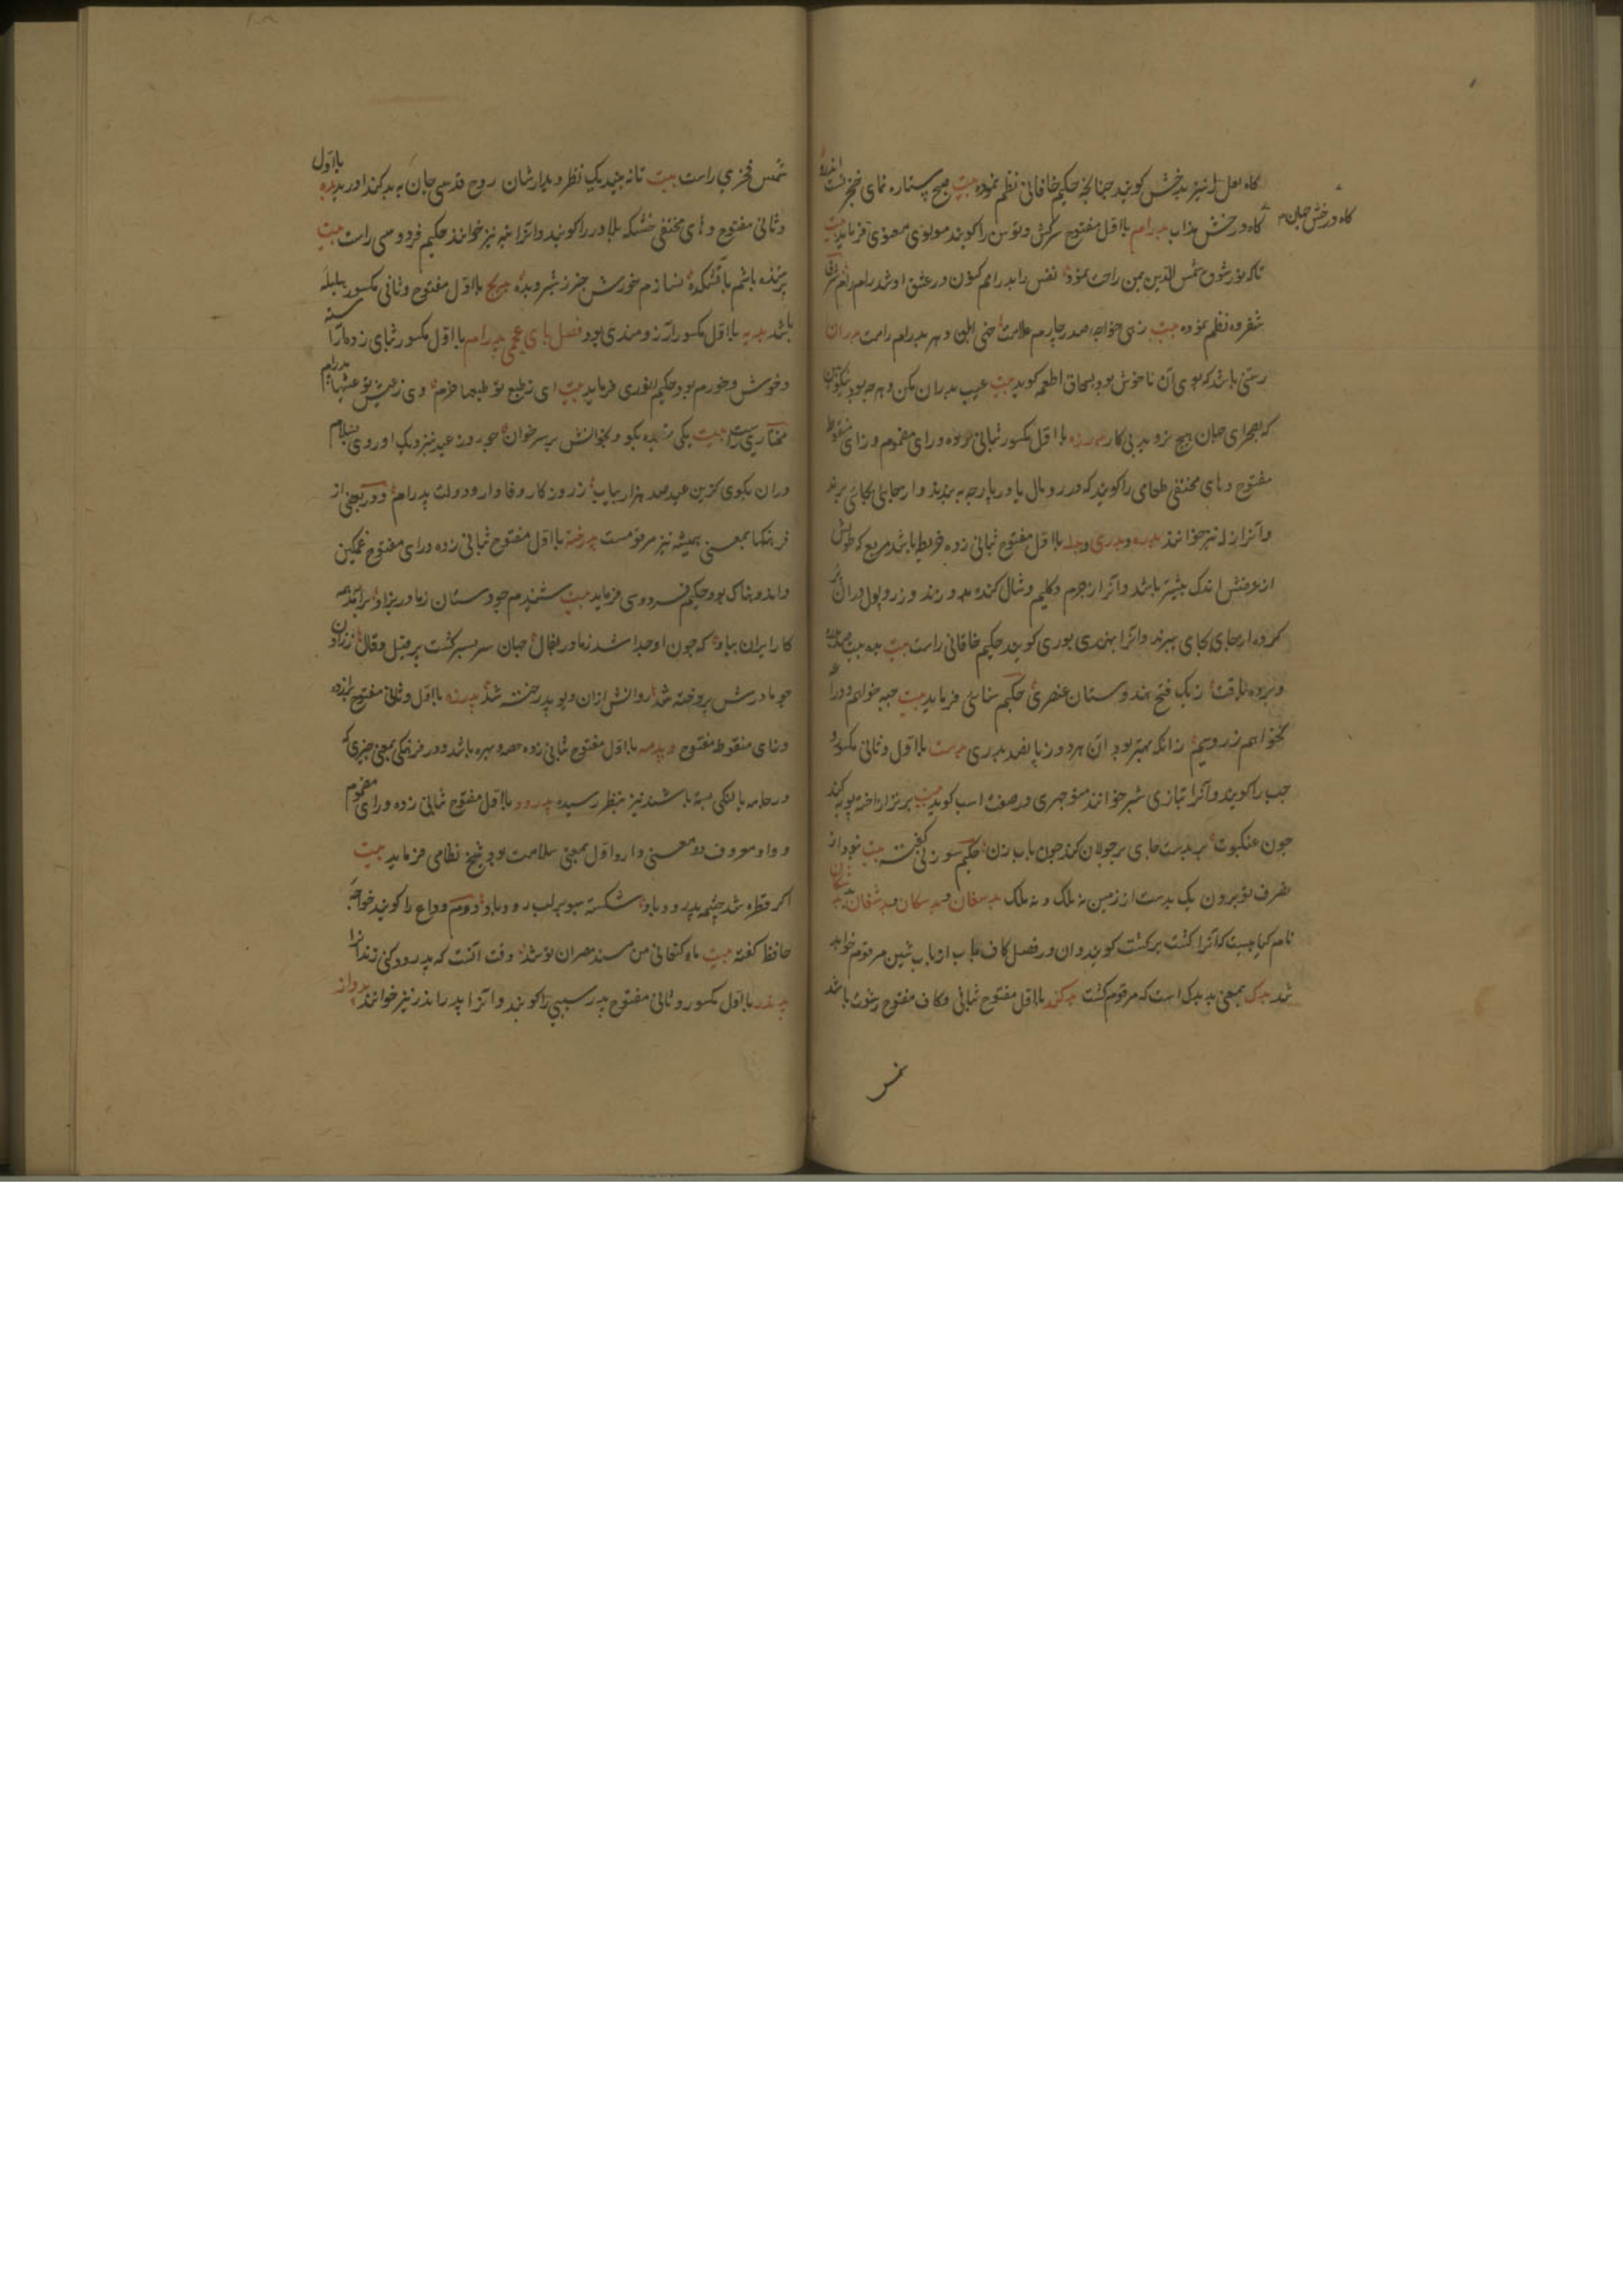 کاه لعل را نیز بدخش کویند چنانچه حکیم خاقانی نظم نموده بیت صبح ستاره نمای خنجر تست اندرو
کاه درخش جهان
کاه درخش مذاب بدرام بااول مفتوح سرکش و توسن را کویند مولوی معنوی فرماید بیت
تا که نور شوق شمس الدین بمن راحت نمود نفس را بدرامم کنون در عشق او شد رام رام
شفروه نظم نموده بیت زهی خواجه صدر چارم علامت جنی ابلق و بدرام رامت بدران
رستنی باشد که بوی آن ناخوش بود بسحاق اطعمه کوید بیت عیب بدران مکن و هر چه بود نیکو بین
که بصحرای جهان هیچ نروید بی کار بدرزه بااول مکسور بثانی زده و رای مضموم و زای منقوط
مفتوح و های مختفی طعامی را کویند که در رومال یا در پارچه به بندند و از جایی بجائی برند
و آنرا زله نیز خوانند بدره و بدری و بدله بااول مفتوح بثانی زده خریطه باشد مربع که طولش
از عرضش اندک بیشتر باشد و آنرا از چرم و کلیم و شال کنده بدوزند و زر و پول در آن پر
کرده از جای بجای ببرند و آنرا بهندی توری کویند حکیم خاقانی راست بیت
و برده یافت ز یک فتح هندوستان عنصری حکیم سنائی فرماید بیت جبه خواهم و درا
نخواهم زر و سیم زانکه بهتر بود آن هر دو ز پانصد بدری بدست بااول و ثانی مکسور و
جب را کویند و آنرا بتازی شبر خوانند منوچهری در صفت اسب کوید بیت بر نزار اخته پویه کند
چون عنکبوت بر بدست جای بر جولان کند چون بابزن حکیم سوزنی کفته بیت نبود از
تصرف تو برون یک بدست از زمین نه ملک و نه ملک بدسغان و بدسکان و بدشغان بدشکان
نام کیاهیست که آنرا کشت برکشت کویند و آن در فصل کاف باب از باب شین مرقوم خواهد
شد بدک بمعنی بدبدک است که مرقوم کشت بدکند بااول مفتوح بثانی و کاف مفتوح رشوت باشد
شمس
شمس فخری راست بیت تا نه بیند یک نظر دیدارشان روح قدسی جان به بدکند آورد بدره بااول
و ثانی مفتوح و های مختفی خشکه بلادر را کویند و آنرا نیز خوانند حکیم فردوسی راست بیت
پرنده باشم بآتشکده نسازم خورش جز ز شیر و بده بدیح بااول مفتوح و ثانی مکسور بلبله
باشد بدیه بااول مکسور آرزومندی بود فصل بای عجمی پدرام بااول مکسور بثانی زده آراسته
و خوش و خرم بود حکیم انوری فرماید بیت ای ز طبع تو طبعها خرم وی ز عیش تو عیشها پدرام
مختاری راست بیت یکی بنده بکو و بخوانش بر سر خوان چو روز عید نیز و یک او روی بسلام
در آن بکوی کزین عید صد هزار بیاب ز روزکار وفادار و دولت پدرام و در بعضی از
فرهنکها بمعنی همیشه نیز مرقومست پدرخته بااول مفتوح بثانی زده و رای مفتوح غمکین
و اندوهناک بود حکیم فردوسی فرماید بیت شنیدم چو دستان ز مادر بزاد برآمد همه
کار ایران بباد که چون او جدا شد ز مادر بفال جهان سر بسر کشت پر قیل و قال ز زادن
چو مادرش پردخته شد روانش ازان دیو پدرخته شد پدرزه بااول و ثانی مفتوح برازده
و زای منقوط مفتوح و پدمه بااول مفتوح بثانی زده حصه و بهره باشد و در فرهنکی بمعنی چیزی که
در جامه یا لنکی بسته باشند نیز بنظر رسیده پدرود بااول مفتوح بثانی زده و رای مضموم
و واو معروف دو معنی دارد اول بمعنی سلامت بود شیخ نظامی فرماید بیت
اکر قطره شد چشمه پدرود باد شکسته سبو بر لب رود باد دوم وداع را کویند خواجه
حافظ کفته بیت ماه کنعانی من مسند مصر آن تو شد وقت آنست که پدرود کنی زندانرا
پدندر بااول مکسور و ثانی مفتوح پدر سببی را کویند و آنرا پدراندر نیز خوانند پرواز